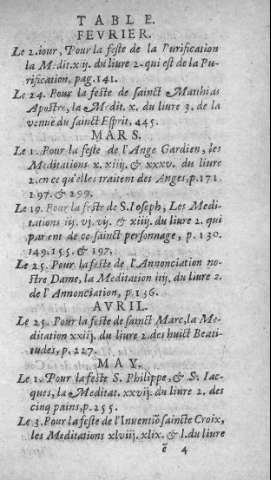 TABLE.
FEVRIER.
Le 2. iour, Pour la feste de la Purification
la Medit. xij. du liure 2. qui est de la Pu-
rification, pag. 141.
Le 24. Pour la feste de sainct Matthias
Apostre, la Medit. x. du liure 3. de la
venue du sainct Esprit, 445.
MARS.
Le 1. Pour la feste de l'Ange Gardien, les
Meditations x. xiiij. & xxxv. du liure
2. en ce qu'elles traitent des Anges, p. 171.
197. & 299.
Le 19. Pour la feste de S. Ioseph, Les Medi-
tations iij. vj. vij. & xiiij. du liure 2. qui
parlent de ce sainct personnage, p. 130.
149. 155. & 197.
Le 25. Pour la feste de l'Annonciation no-
stre Dame, la Meditation iiij. du liure 2.
de l'Annonciation, p. 136.
AVRIL.
Le 25. Pour la feste de sainct Marc, la Me-
ditation xxiij. du liure 2. des huict Beati-
tudes, p. 227.
MAY.
Le 1. Pour la feste S. Philippe, & S. Iac-
ques, la Meditat. xxvij. du liure 2. des
cinq pains, p. 255.
Le 3. Pour la feste de l'Inuentiō saincte Croix,
les Meditations xlviij. xlix. & l. du liure
ē 4